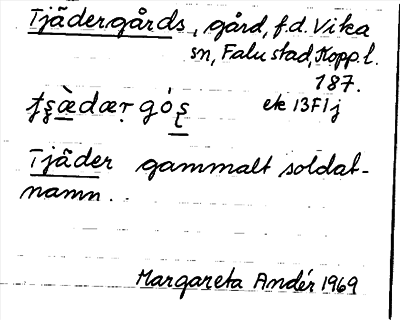 Tjädergårds, gård, f.d. Vika
sn, Falu stad, Kopp.l.
187.
ek 13F1j
Tjäder gammalt soldat-
namn.
Margareta Andér 1969